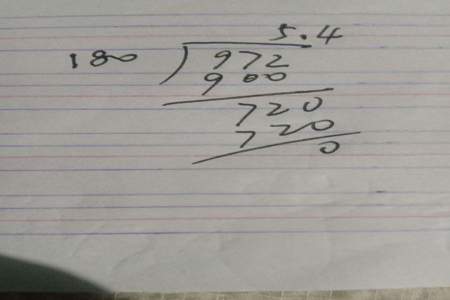 5.4
180 ) 972
900
720
720
0